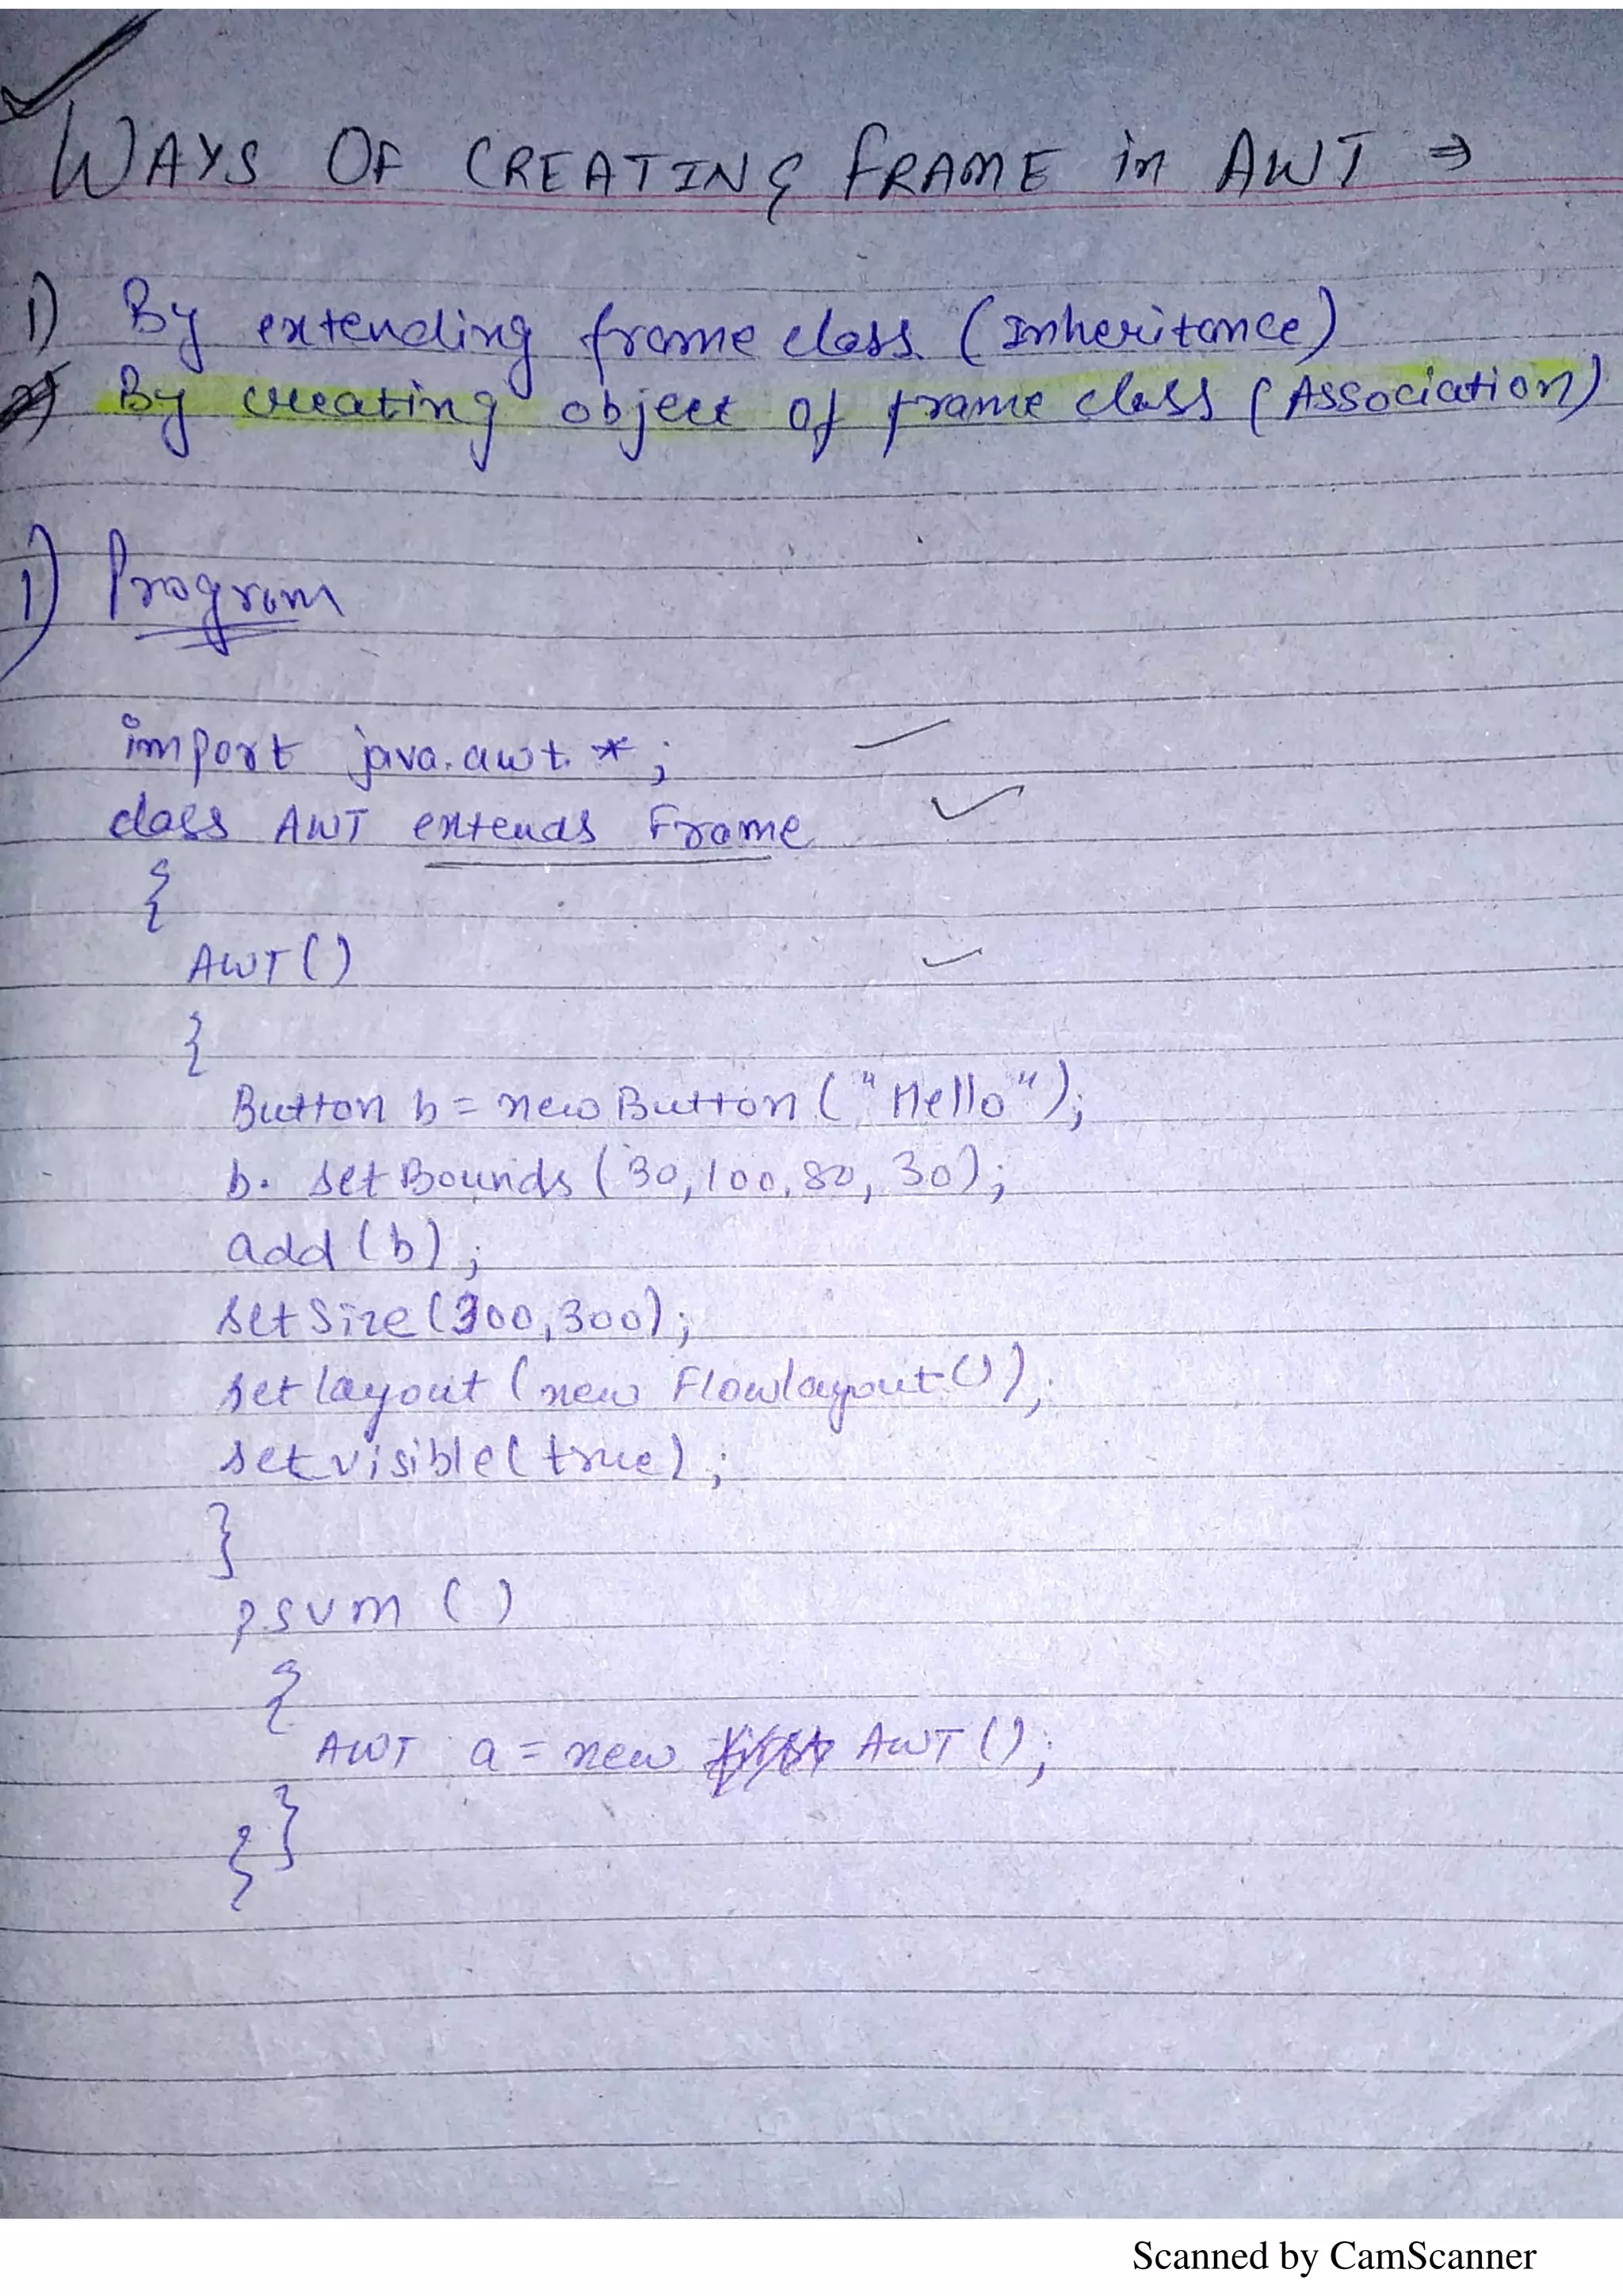 WAYS OF CREATING FRAME in AWT ⇒
1) By extending frame class. (Inheritance)
2) By creating object of frame class (Association)
1) Program
import java.awt.*;
class AWT extends Frame
{
AWT()
{
Button b = new Button ("Hello");
b. setBounds (30,100,80, 30);
add (b);
setSize (300,300);
setlayout (new Flowlayout());
setvisible( true);
}
psvm ()
{
AWT a = new AWT ();
}
}
Scanned by CamScanner